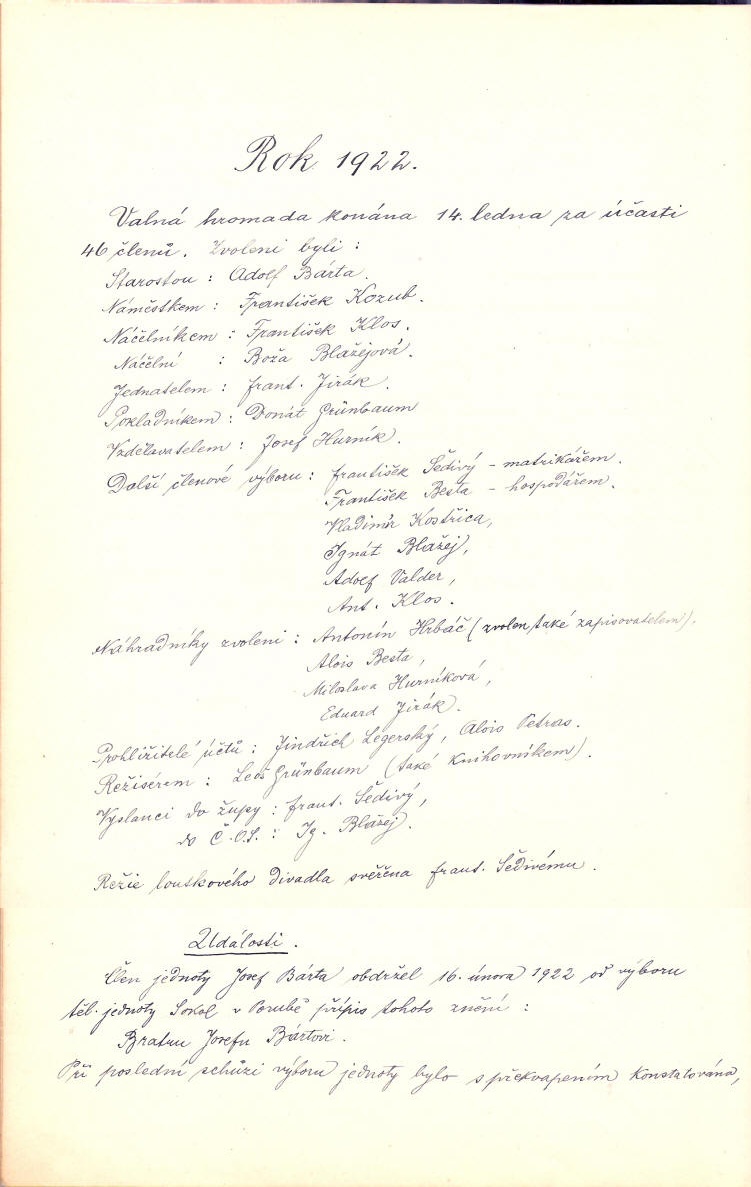 Rok 1922.
Valná hromada konána 14. ledna za účasti
46 členů. Zvoleni byli :
Starostou : Adolf Bárta.
Náměstkem : František Kozub.
Náčelníkem : František Klos.
Náčelní : Boža Blažejová.
Jednatelem : Frant. Jirák.
Pokladníkem : Donát Grünbaum
Vzdělavatelem : Josef Hurník.
Další členové výboru : František Šedivý - matrikářem.
František Besta - hospodářem.
Vladimír Kostřica,
Ignát Blažej,
Adolf Valder,
Ant. Klos.
Náhradníky zvoleni : Antonín Hrbáč (zvolen také zapisovatelem).
Alois Besta,
Miloslava Hurníková,
Eduard Jirák.
Prohlížitelé účtů : Jindřich Legerský, Alois Petras.
Režisérem : Leoš Grünbaum (také knihovníkem).
Vyslanci do župy : Frant. Šedivý,
do Č.O.S. : Ig. Blažej.
Režie loutkového divadla svěřena Frant. Šedivému.
Události.
Člen jednoty Josef Bárta obdržel 16. února 1922 od výboru
těl. jednoty Sokol v Porubě přípis tohoto znění :
Bratru Josefu Bártovi.
Při poslední schůzi výboru jednoty bylo s překvapením konstatována,